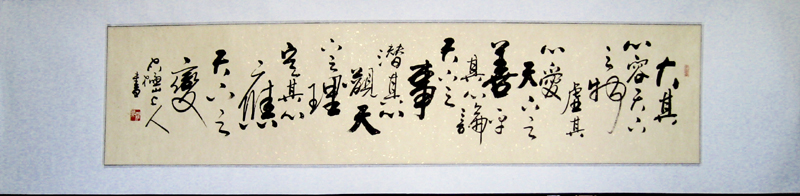 大其
心容天下
之物
虛其
心愛
天下之
善平
其心論
天下之
事
潛其心
觀天
下之理
定其心
應
天下之
變
書